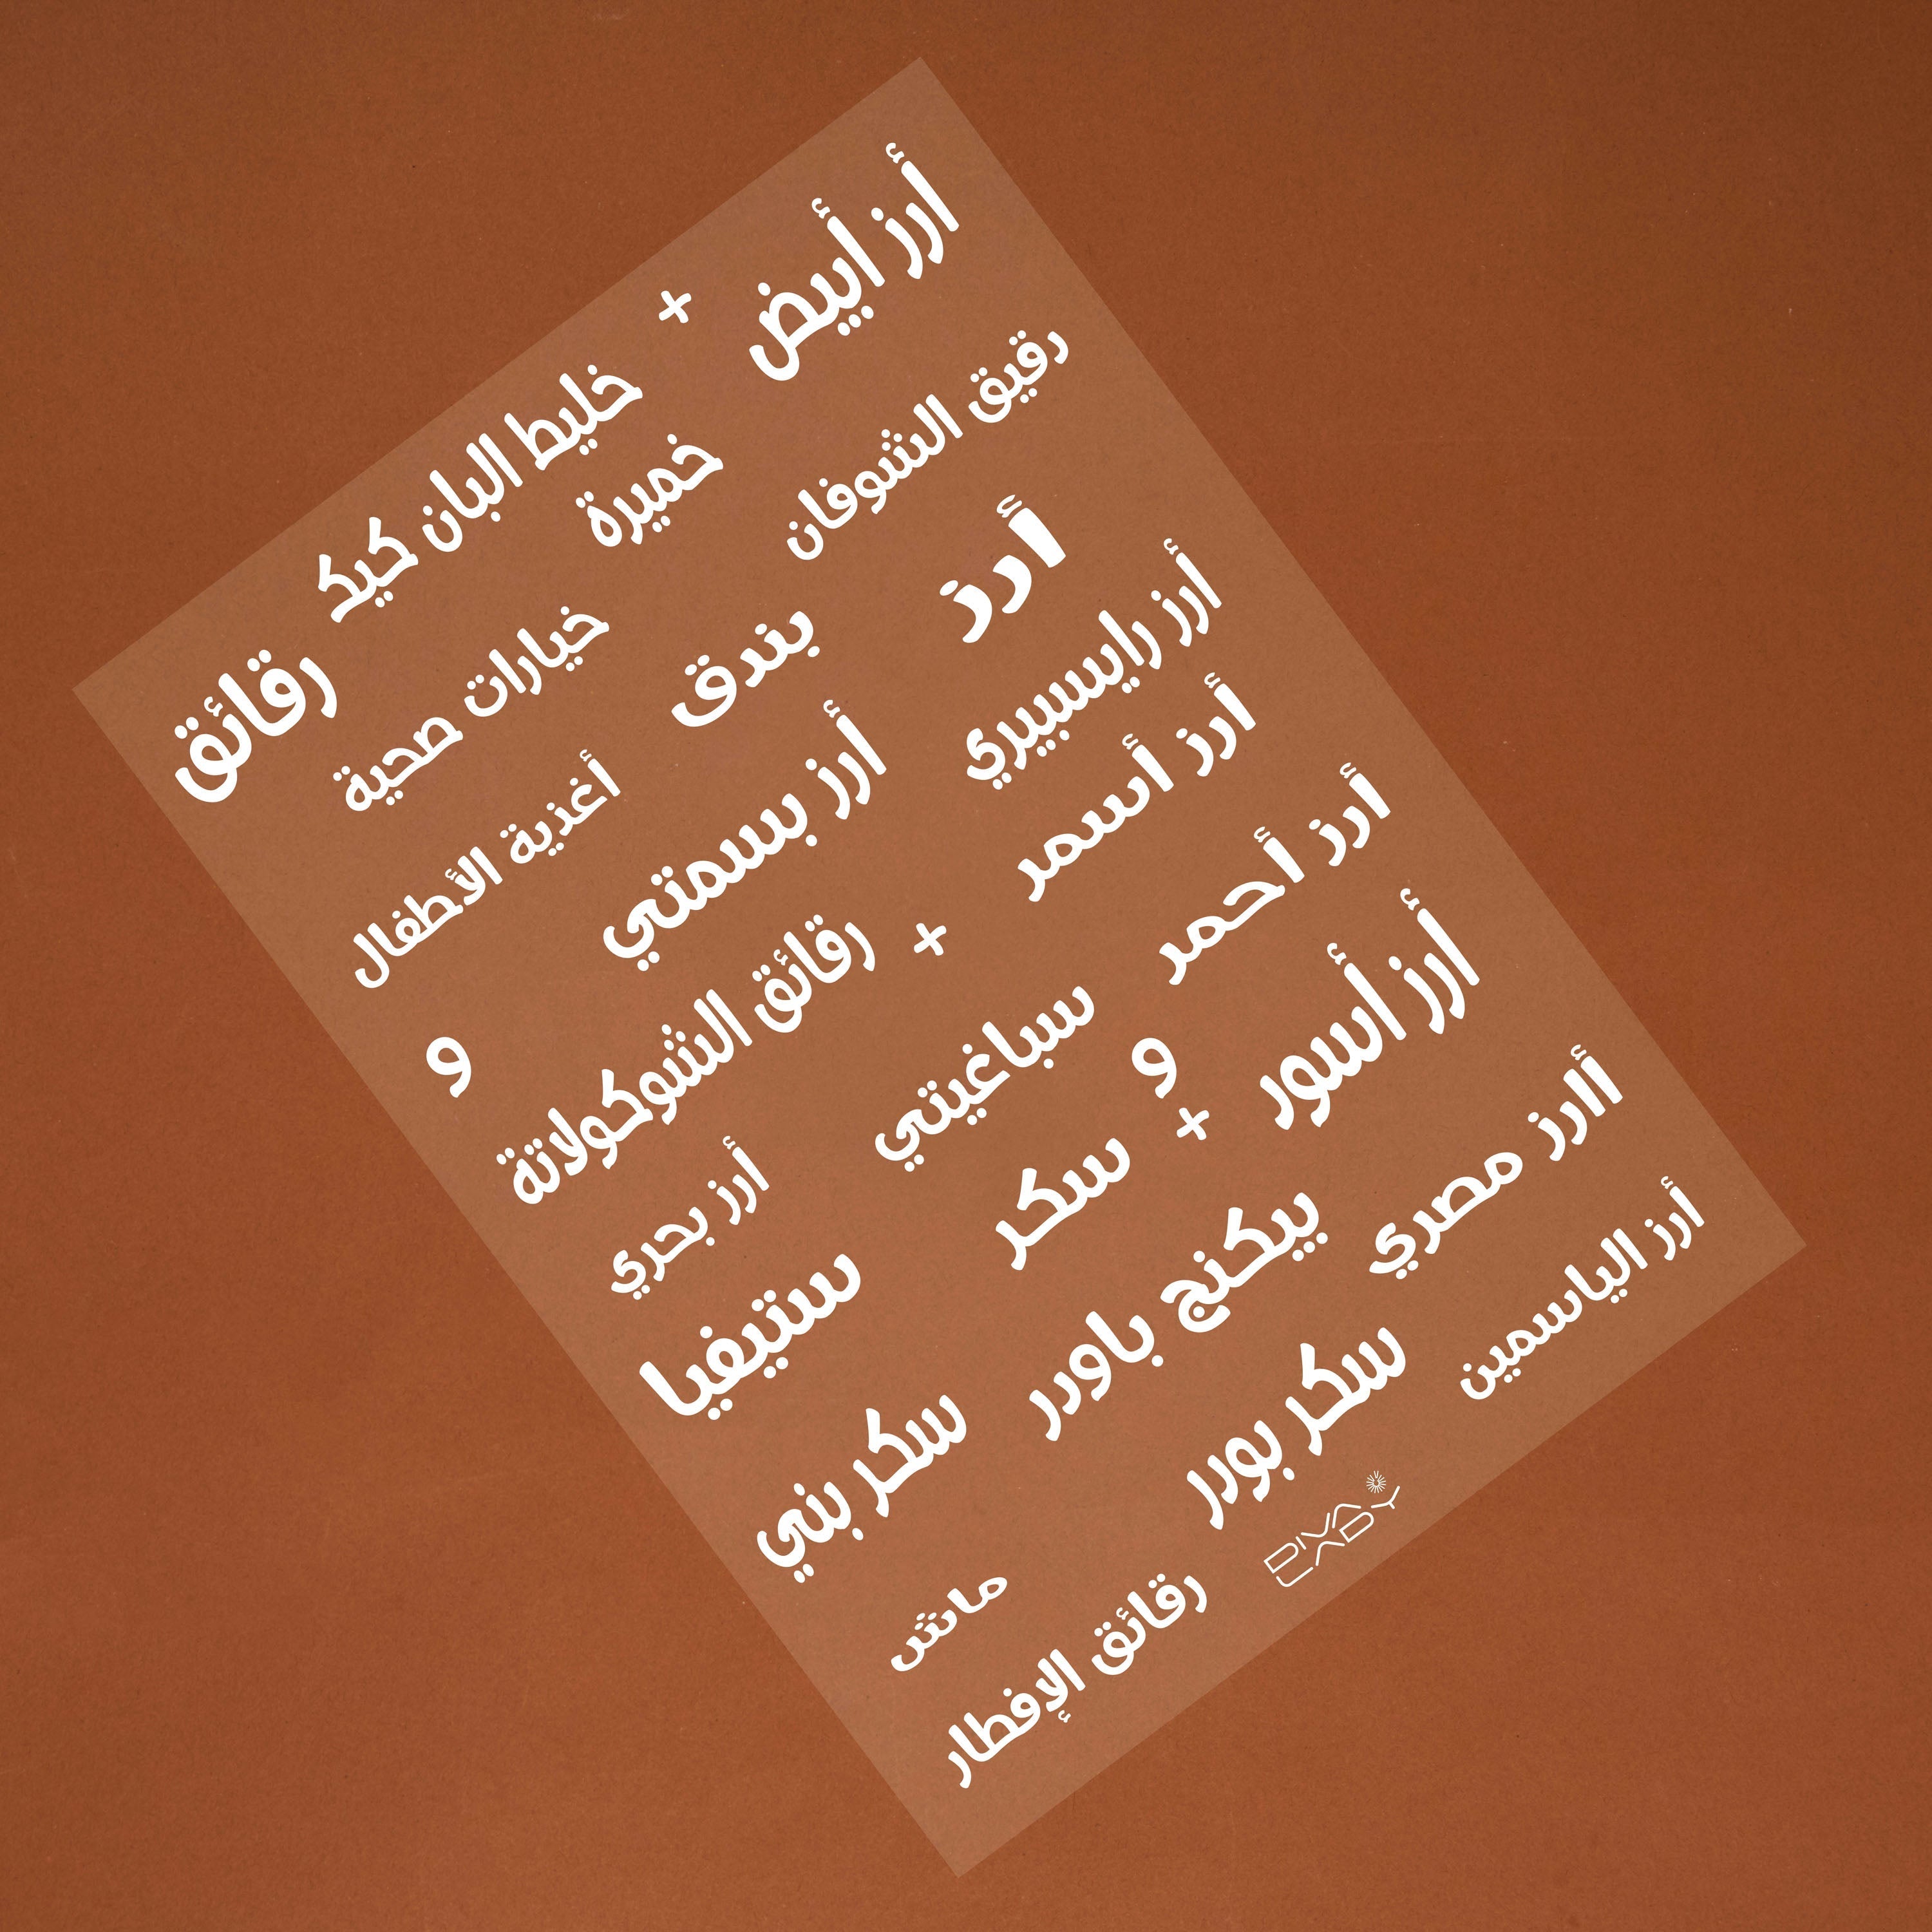 أرز أبيض
+
خليط البان كيك
رقائق
رقيق الشوفان
خميرة
خيارات صحية
أرز
بندق
أغذية الأطفال
أرز رايسبيري
أرز بسمتي
أرز اسمر
+
رقائق الشوكولاتة
و
أرز أحمر
سباغيتي
أرز بحري
أرز أسور
و
+
سكر
ستيفيا
أارز مصري
بيكنج باودر
سكر بني
أرز الياسمين
سكر بودر
ماتش
رقائق الإفطار
DIVA
LADY